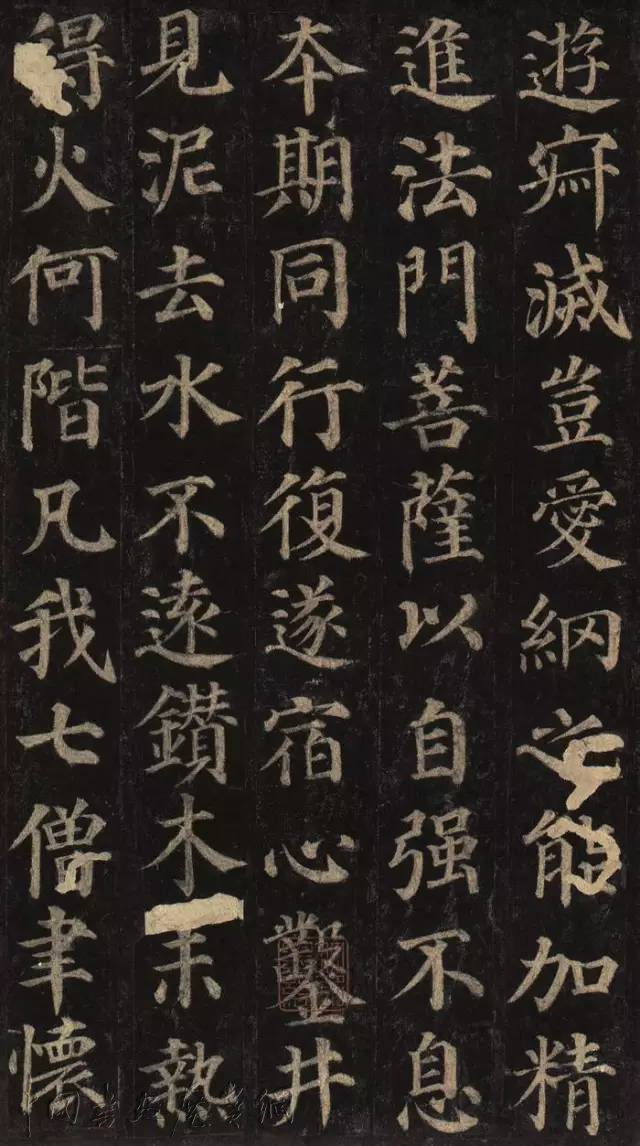 遊寂滅豈愛綱之能加精
進法門菩薩以自强不息
夲期同行復遂宿心鑿井
見泥去水不遠鑽木未熱
得火何階凡我七僧聿懷